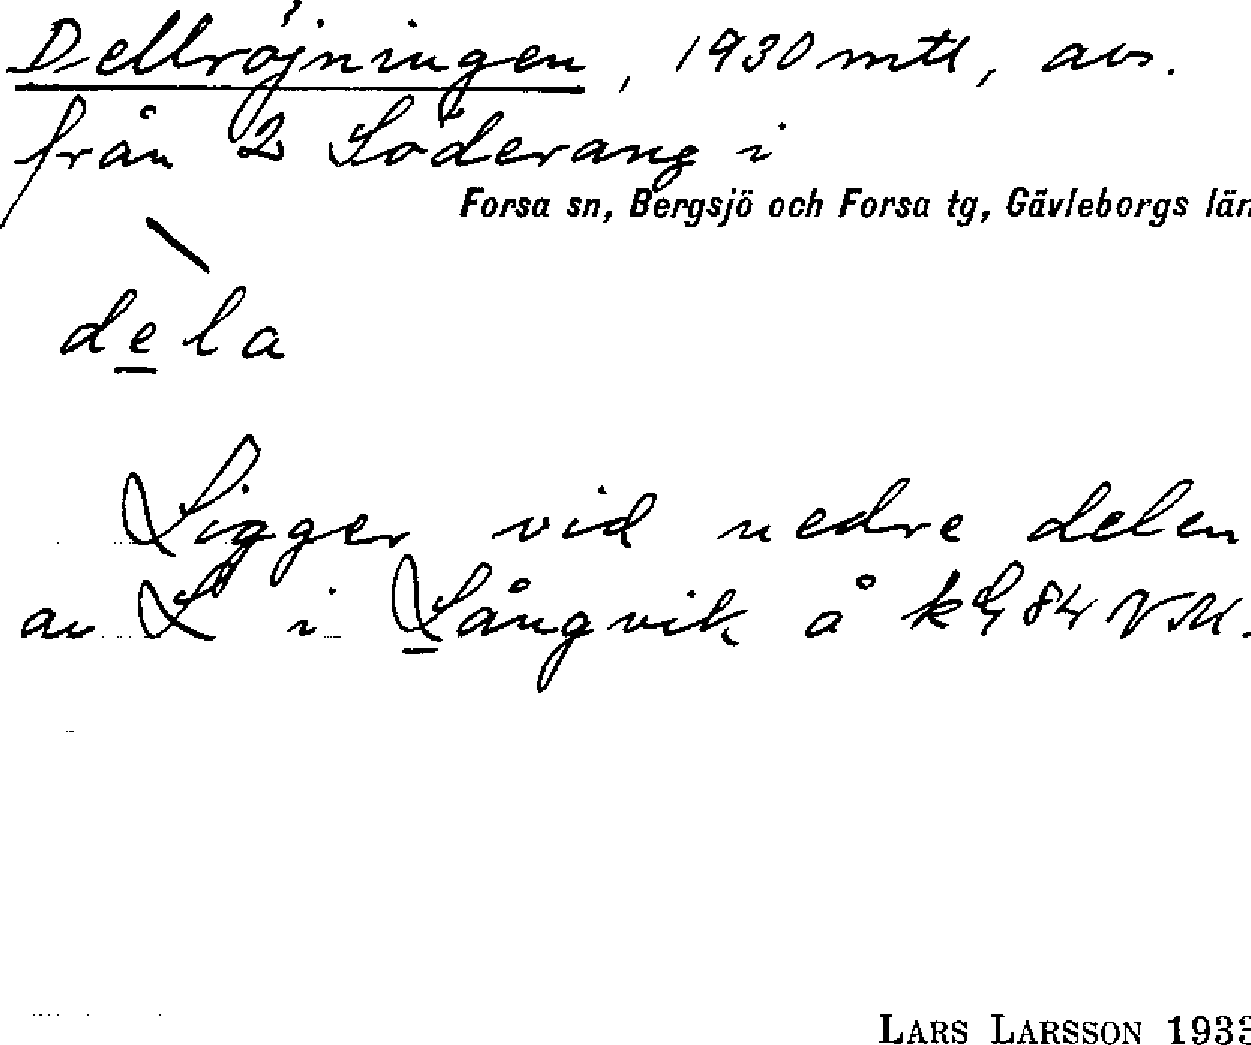 Dellröjningen, 1930 mtl, avs.
från 2 Söderäng i
Forsa sn, Bergsjö och Forsa tg, Gävleborgs län
dela
Ligger vid nedre delen
av L i Långvik å
LARS LARSSON 1933